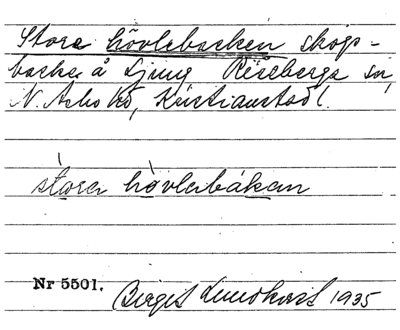 Stora hövlebacken skogs-
backe å Ljung Riseberga sn,
N. Åsbo hd, Kristianstads l.
stora hövlabákan
Nr 5501.
Birgit Lundkvist 1935